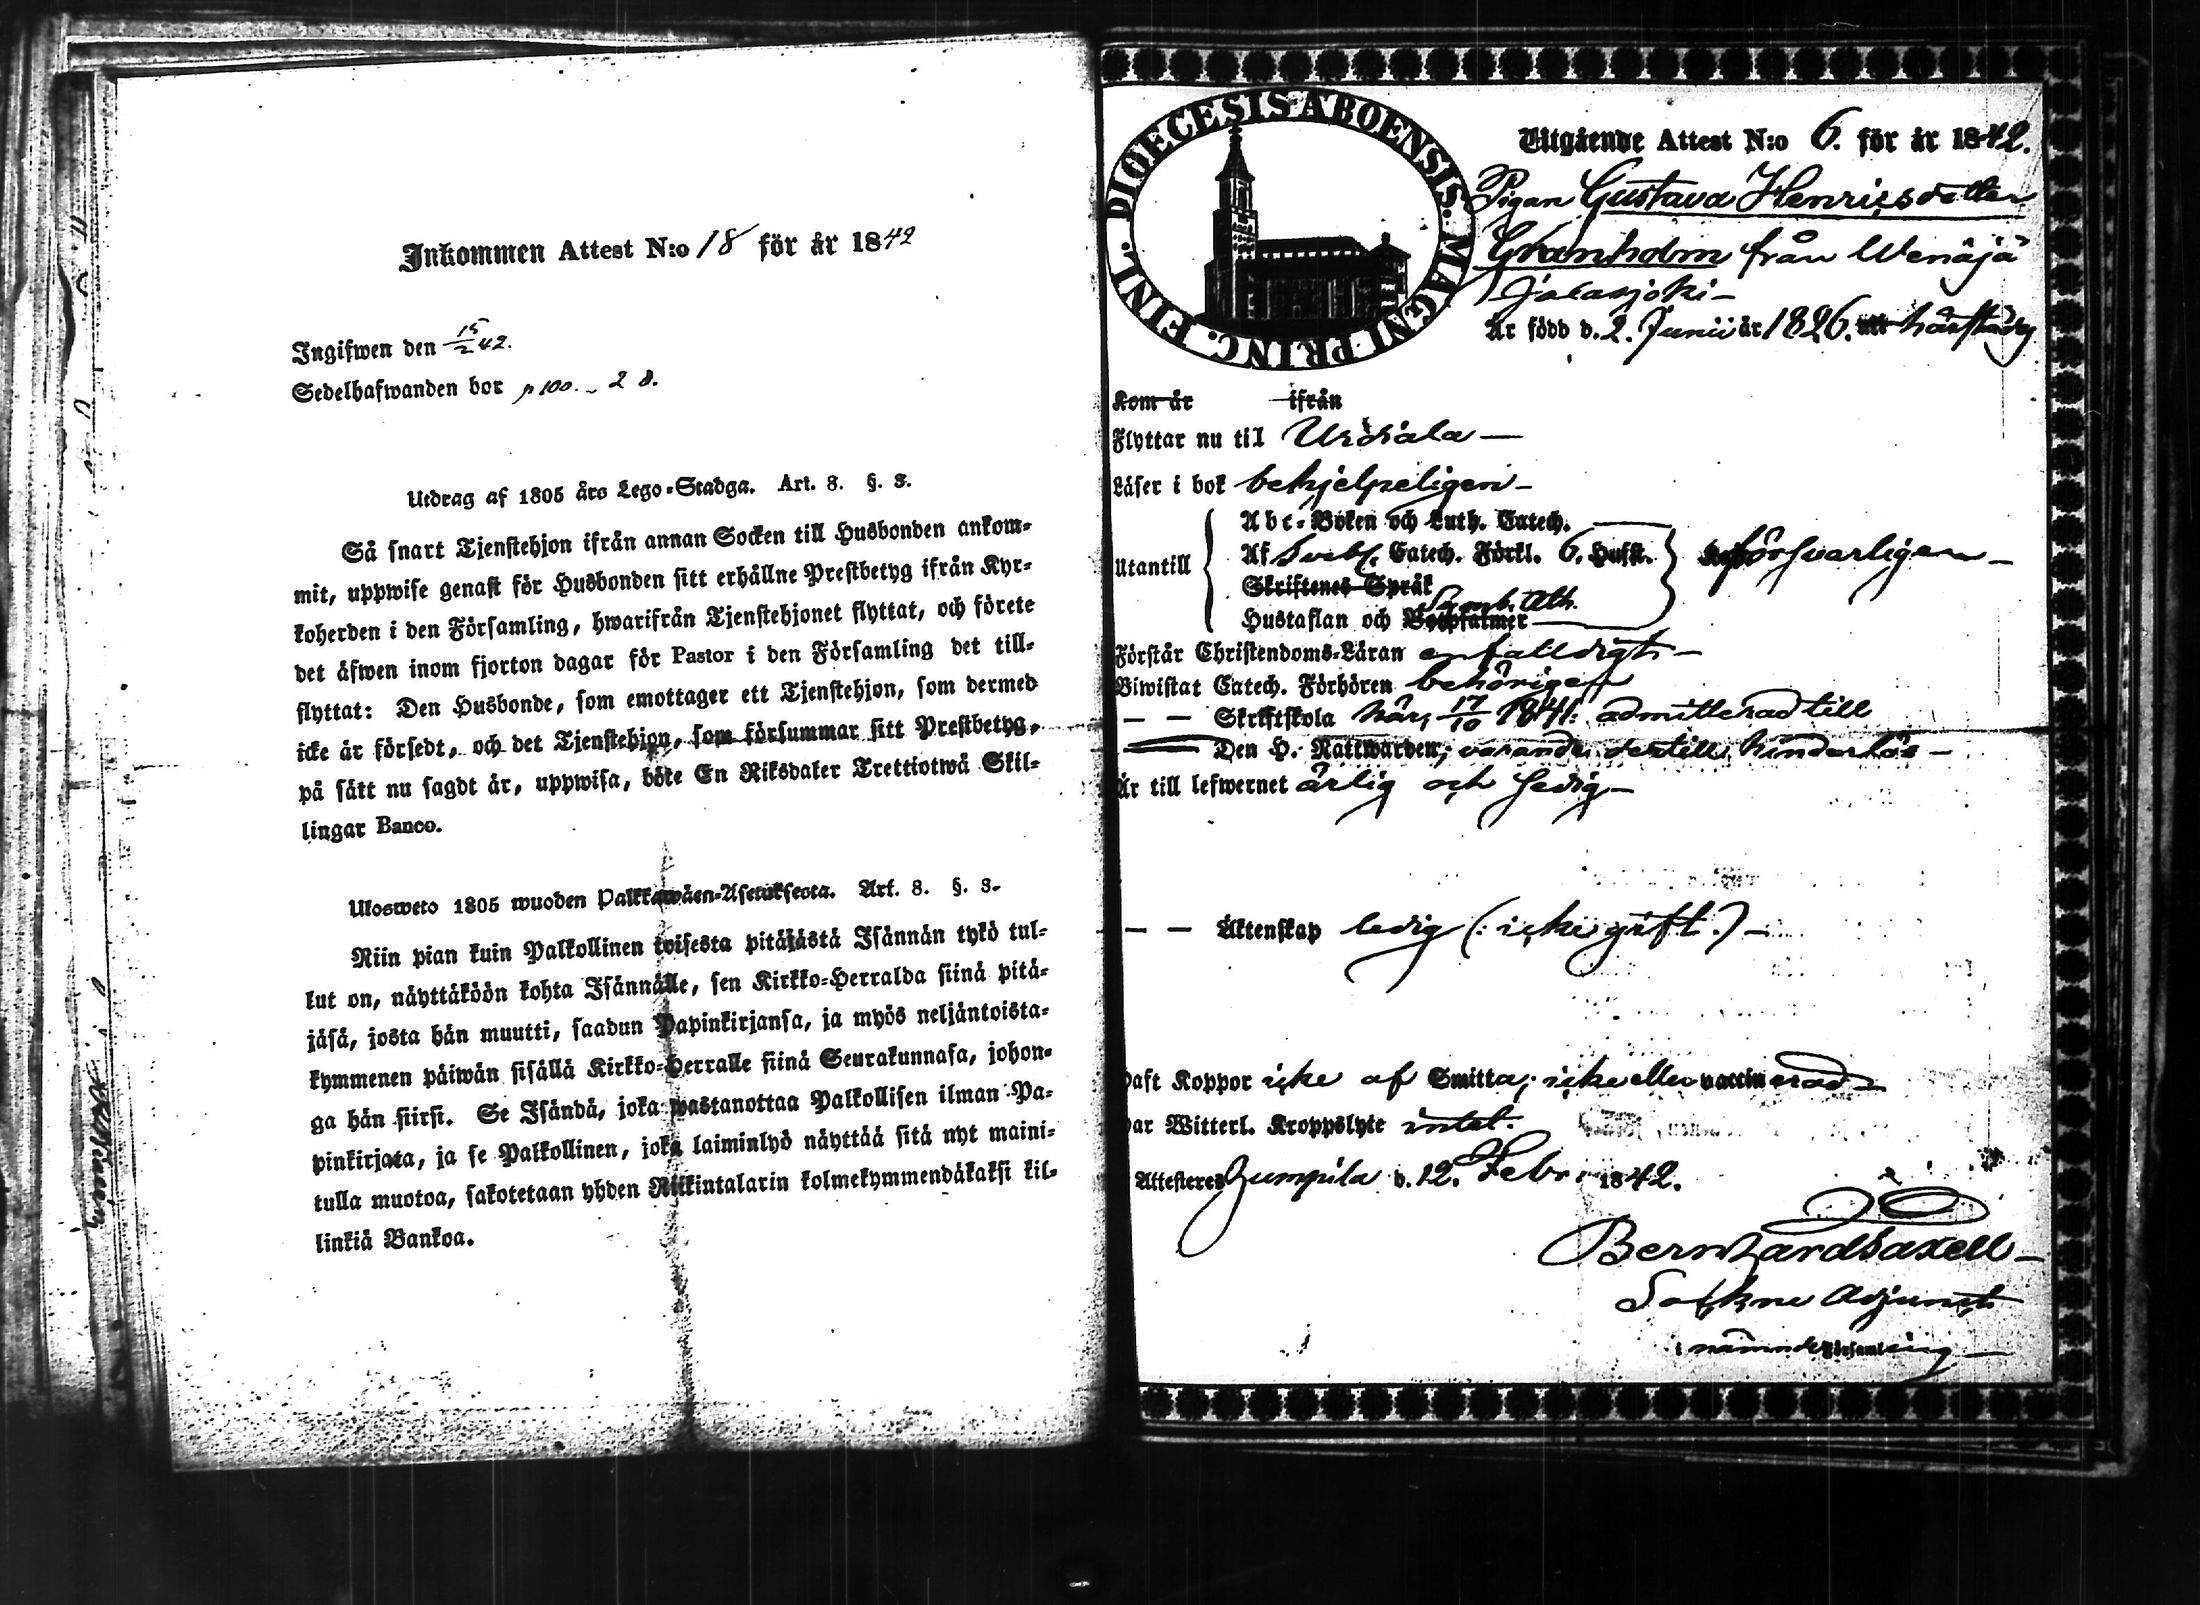 Inkommen Attest N:o 18 för år 1842
Ingifwen den 15/2 42.
Sedelhafwanden bor p 100. - 28.
Utdrag af 1805 års Lego-Stadga. Art. 8. §. 3.
Så snart Tjenstehjon ifrån annan Socken till Husbonden ankom-
mit, uppwise genast för Husbonden sitt erhållne Prestbetyg ifrån Kyr-
koherden i den Församling, hwarifrån Tjenstehjonet flyttat, och förete
det äfwen inom fjorton dagar för Pastor i den Församling det till-
flyttat: Den Husbonde, som emottager ett Tjenstehjon, som dermed
icke är försedt, och det Tjenstehjon, som försummar sitt Prestbetyg,
på sätt nu sagdt är, uppwisa, böte En Riksdaler Trettiotwå Skil-
lingar Banco.
Ulosweto 1805 wuoden Palkkawäen-Asetuksesta. Art. 8. §. 3.
Niin pian kuin Palkollinen toisesta pitäjästä Isännän tykö tul-
lut on, näyttäköön kohta Isännälle, sen Kirkko-Herralda siinä pitä-
jäsä, josta hän muutti, saadun Papinkirjansa, ja myös neljäntoista-
kymmenen päiwän sisällä Kirkko-Herralle siinä Seurakunnasa, johon-
ga hän siirsi. Se Isändä, joka wastanottaa Palkollisen ilman Pa-
pinkirjata, ja se Palkollinen, joka laiminlyö näyttää sitä nyt maini-
tulla muotoa, sakotetaan yhden Riikintalarin kolmekymmendäkaksi kil-
linkiä Bankoa.
DIOECESIS ABOENSIS. MAGNI PRINC. FINL.
Utgående Attest N:o 6. för år 1842.
Pigan Gustava Henricsdotter
Granholm från Wenäjä
Jalasjoki -
Är född d. 2. Junii år 1826. härstädes
Kom år ifrån
Flyttar nu til Urdiala -
Läser i bok behjelpeligen -
Utantill
Abc-Boken och Luth. Catech.
Af Svebl. Catech. Förkl. 6. Hufst. försvarligen -
Skriftenes Språk
Hustaflan och Botpsalmer Symb. Ath.
Förstår Christendoms-Läran enfalldigt -
Biwistat Catech. Förhören behörigen
- - Skriftskola här, 17/10 1841: admitterad till
Den H. Nattwarden; varande dertill hinderlös -
Är till lefwernet ärlig och sedig -
- - Äktenskap ledig (: icke gift.) -
Haft Koppor icke af Smitta; icke eller vaccinerad -
Har Witterl. Kroppslyte intet.
Attesteres Humpila d. 12. Febr. 1842.
Bernhard Saxell -
Sockne Adjunct
i nämnde Församling -